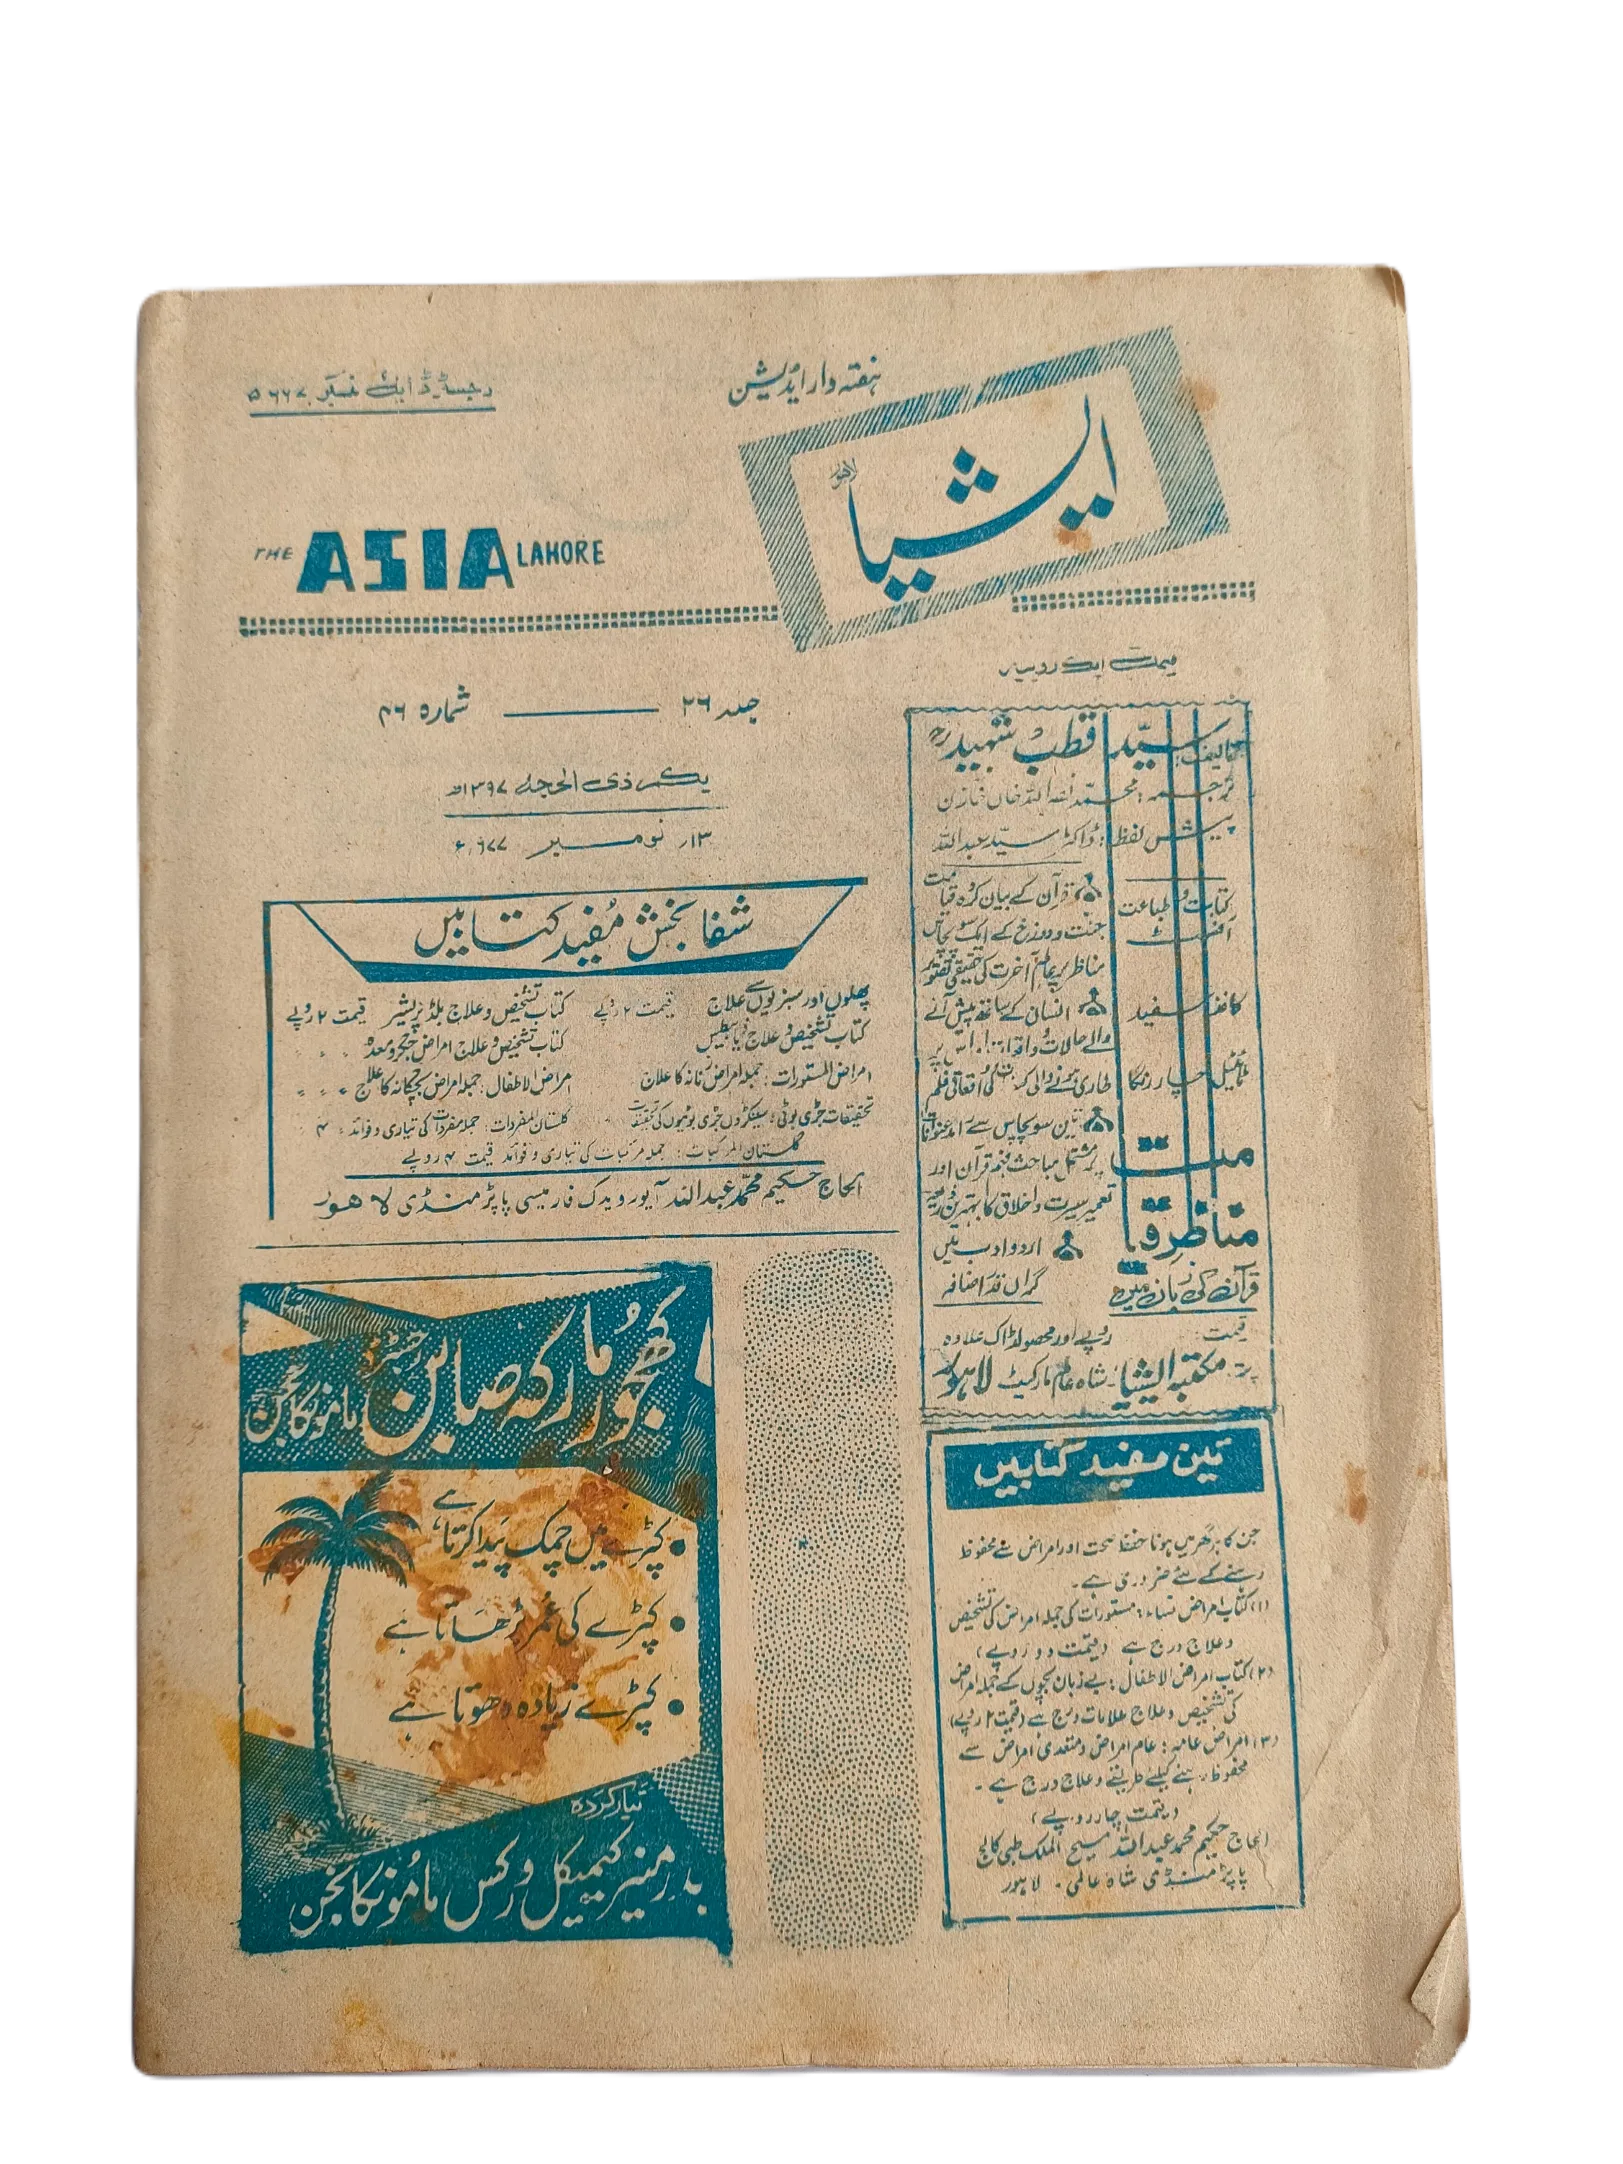 رجسٹرڈ ایل نمبر ۵۶۶۷
ہفتہ وار ایڈیشن
ایشیا
لاہور
THE ASIA LAHORE
قیمت ایک روپیہ
جلد ۲۶ شمارہ ۴۶
یکم ذی الحجہ ۱۳۹۷ھ
۱۳ نومبر ۱۹۷۷ء
تالیف: سید قطب شہید رح
ترجمہ: محمد نصر اللہ خاں خازن
پیش لفظ: ڈاکٹر سید عبداللہ
کتابت و طباعت
آفسٹ
کاغذ سفید
ٹائٹیل چار رنگا
قیمت
قرآن کے بیان کردہ قیامت
جنت و دوزخ کے ایک سو پچاس
مناظر پر عالم آخرت کی حقیقی تصویر
انسان کے ساتھ پیش آنے
والے حالات و واقعات، اس پر
طاری ہونے والی کیفیات کی واقعاتی فلم
تین سو پچاس سے زائد عنوانات
پر مشتمل مباحث فہم قرآن اور
تعمیر سیرت و اخلاق کا بہترین ذریعہ
اردو ادب میں
گراں قدر اضافہ
مناظر قیامت
قرآن کی زبان میں
قیمت روپے اور محصولڈاک علاوہ
پتہ: مکتبہ ایشیا۔ شاہ عالم مارکیٹ لاہور
شفا بخش مفید کتابیں
پھلوں اور سبزیوں سے علاج قیمت ۲ روپے
کتاب تشخیص و علاج بلڈ پریشر قیمت ۲ روپے
کتاب تشخیص و علاج ذیابطیس
کتاب تشخیص و علاج امراض جگر و معدہ 〃 〃 〃
امراض المستورات: جملہ امراض زنانہ کا علاج
امراض الاطفال: جملہ امراض بچگانہ کا علاج 〃 〃 〃
تحقیقات جڑی بوٹی: سینکڑوں جڑی بوٹیوں کی تحقیقات
گلستان المفردات: جملہ مفردات کی تیاری و فوائد: ۴
گلستان المرکبات: جملہ مرکبات کی تیاری و فوائد قیمت ۴ روپے
الحاج حکیم محمد عبداللہ آیورویدک فارمیسی پاپڑ منڈی لاہور
کھجور مارکہ صابن رجسٹرڈ ماموںکانجن
• کپڑے میں چمک پیدا کرتا ہے
• کپڑے کی عمر بڑھاتا ہے
• کپڑے زیادہ دھوتا ہے
تیار کردہ
کیمیکل ورکس ماموںکانجن
تین مفید کتابیں
جن کا ہر گھر میں ہونا حفظ صحت اور امراض سے محفوظ
رہنے کے لئے ضروری ہے۔
(۱) کتاب امراض نساء: مستورات کی جملہ امراض کی تشخیص
و علاج درج ہے (قیمت دو روپے)
(۲) کتاب امراض الاطفال: بے زبان بچوں کے جملہ امراض
کی تشخیص و علاج علامات درج ہے (قیمت ۲ روپے)
(۳) امراض عامہ: عام امراض و متعدی امراض سے
محفوظ رہنے کیلئے طریقے و علاج درج ہے۔
(قیمت چار روپے)
الحاج حکیم محمد عبداللہ مسیح الملک طبی کالج
پاپڑ منڈی شاہ عالمی۔ لاہور